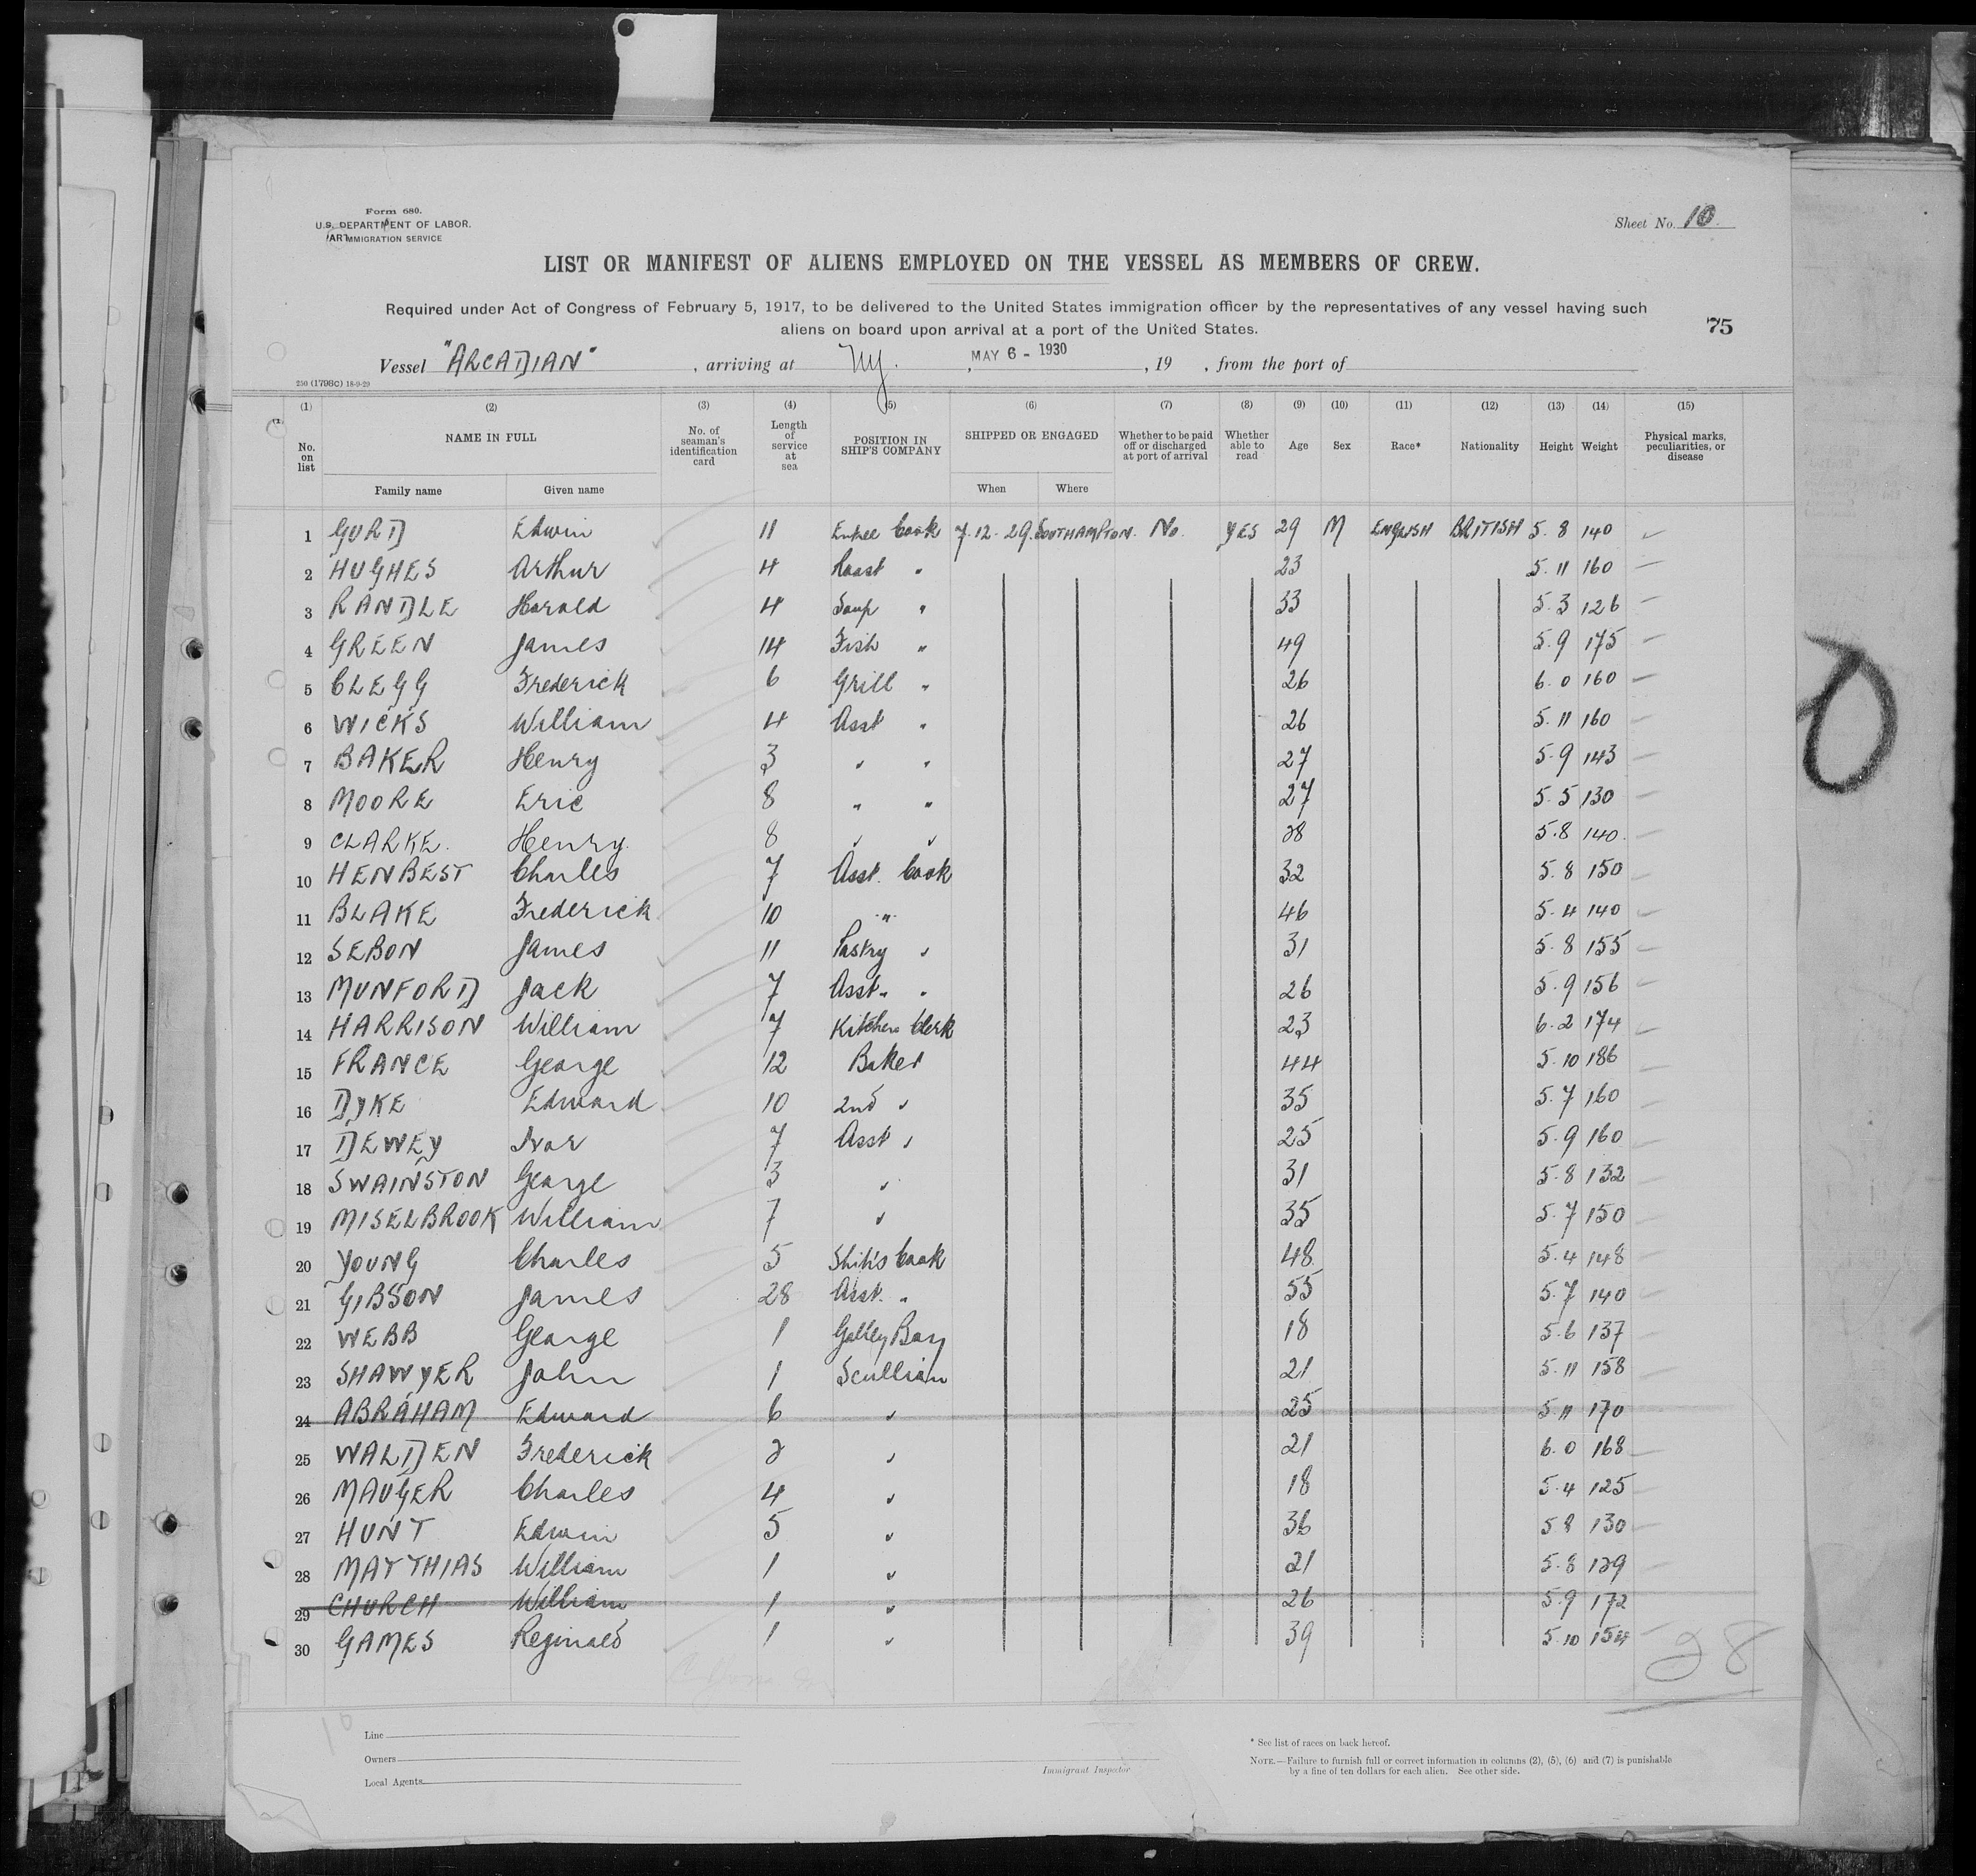 Form 680.
U.S. DEPARTMENT OF LABOR.
IMMIGRATION SERVICE
Sheet No. 10
LIST OR MANIFEST OF ALIENS EMPLOYED ON THE VESSEL AS MEMBERS OF CREW.
Required under Act of Congress of February 5, 1917, to be delivered to the United States immigration officer by the representatives of any vessel having such
aliens on board upon arrival at a port of the United States.
75
Vessel "ARCADIAN", arriving at NY., MAY 6 - 1930, 19 , from the port of
250 (1798C) 18-9-29
(1) (2) (3) (4) (5) (6) (7) (8) (9) (10) (11) (12) (13) (14) (15)
No. on list NAME IN FULL No. of seaman's identification card Length of service at sea POSITION IN SHIP'S COMPANY SHIPPED OR ENGAGED Whether to be paid off or discharged at port of arrival Whether able to read Age Sex Race* Nationality Height Weight Physical marks, peculiarities, or disease
Family name Given name When Where
1 GURD Edwin 11 Entree Cook 7.12.29. SOUTHAMPTON. No. YES 29 M ENGLISH BRITISH 5.8 140
2 HUGHES Arthur 4 Roast " 23 5.11 160
3 RANDLE Harold 4 Soup " 33 5.3 126
4 GREEN James 14 Fish " 49 5.9 175
5 CLEGG Frederick 6 Grill " 26 6.0 160
6 WICKS William 4 Asst " 26 5.11 160
7 BAKER Henry 3 " " 27 5.9 143
8 MOORE Eric 8 " " 27 5.5 130
9 CLARKE. Henry. 8 " " 28 5.8 140.
10 HENBEST Charles 7 Asst. Cook 32 5.8 150
11 BLAKE Frederick 10 " 46 5.4 140
12 SEBON James 11 Pastry " 31 5.8 155
13 MUNFORD Jack 7 Asst. " 26 5.9 156
14 HARRISON William 7 Kitchen Clerk 23 6.2 174
15 FRANCE George 12 Baker 44 5.10 186
16 DYKE Edward 10 2nd " 35 5.7 160
17 DEWEY Ivor 7 Asst " 25 5.9 160
18 SWAINSTON George 3 " 31 5.8 132
19 MISELBROOK William 7 " 35 5.7 150
20 YOUNG Charles 5 Ship's Cook 48 5.4 148
21 GIBSON James 28 Asst. " 55 5.7 140
22 WEBB George 1 Galley Boy 18 5.6 137
23 SHAWYER John 1 Scullion 21 5.11 158
24 ABRAHAM Edward 6 " 25 5.11 170
25 WALDEN Frederick 2 " 21 6.0 168
26 MAUGER Charles 4 " 18 5.4 125
27 HUNT Edwin 5 " 36 5.8 130
28 MATTHIAS William 1 " 21 5.8 129
29 CHURCH William 1 " 26 5.9 172
30 GAMES Reginald 1 " 39 5.10 154
28
10
Line
Owners
Local Agents
Immigrant Inspector
* See list of races on back hereof.
NOTE.—Failure to furnish full or correct information in columns (2), (5), (6) and (7) is punishable
by a fine of ten dollars for each alien. See other side.